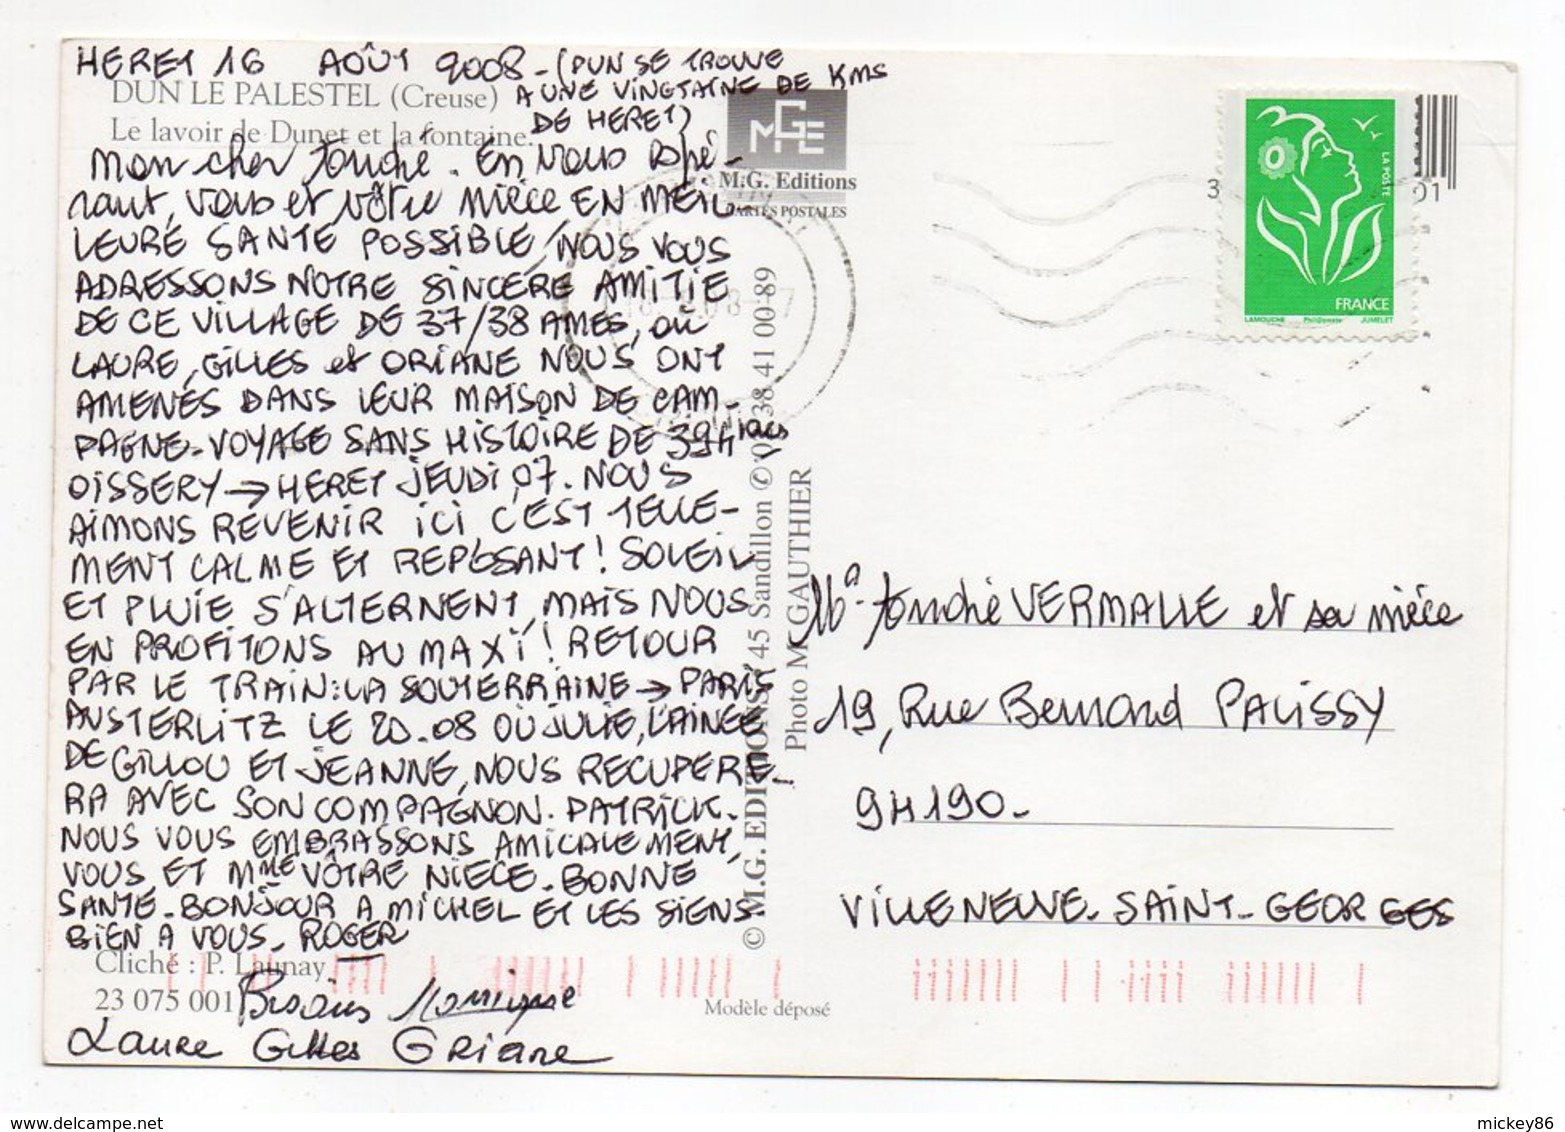 HERET 16 AOÛT 2008 - (DUN SE TROUVE
A UNE VINGTAINE DE KMS
DE HERET)
DUN LE PALESTEL (Creuse)
Le lavoir de Dunet et la fontaine.
Mon cher Touché. En vous espé-
rant, vous et vôtre nièce EN MEIL-
LEURE SANTE POSSIBLE, NOUS VOUS
ADRESSONS NOTRE SINCERE AMITIE
DE CE VILLAGE DE 37/38 AMES, OU
LAURE, GILLES et ORIANE NOUS ONT
AMENES DANS LEUR MAISON DE CAM-
PAGNE. VOYAGE SANS HISTOIRE DE 394
OISSERY → HERET JEUDI 07. NOUS
AIMONS REVENIR ICI C'EST TELLE-
MENT CALME ET REPOSANT! SOLEIL
ET PLUIE S'ALTERNENT, MAIS NOUS
EN PROFITONS AU MAXI! RETOUR
PAR LE TRAIN: LA SOUTERRAINE → PARIS
AUSTERLITZ LE 20.08 OU JULIE, L'AINEE
DE GILLOU ET JEANNE, NOUS RECUPERE-
RA AVEC SON COMPAGNON. PATRICK.
NOUS VOUS EMBRASSONS AMICALEMENT,
VOUS ET MME VÔTRE NIECE. BONNE
SANTE. BONJOUR A MICHEL ET LES SIENS.
BIEN A VOUS. ROGER
Cliché : P. Launay
23 075 001
Bisous Monique
Laure Gilles Oriane
MGE
M.G. Editions
CARTES POSTALES
© M.G. EDITIONS 45 Sandillon ✆ 02 38 41 00 89
Photo M. GAUTHIER
Modèle déposé
LA POSTE
FRANCE
LAMOUCHE Phil@poste JUMELET
Mr Touché VERMALLE et sa nièce
19, Rue Bernard PALISSY
94190 -
VILLENEUVE-SAINT-GEORGES
mickey86